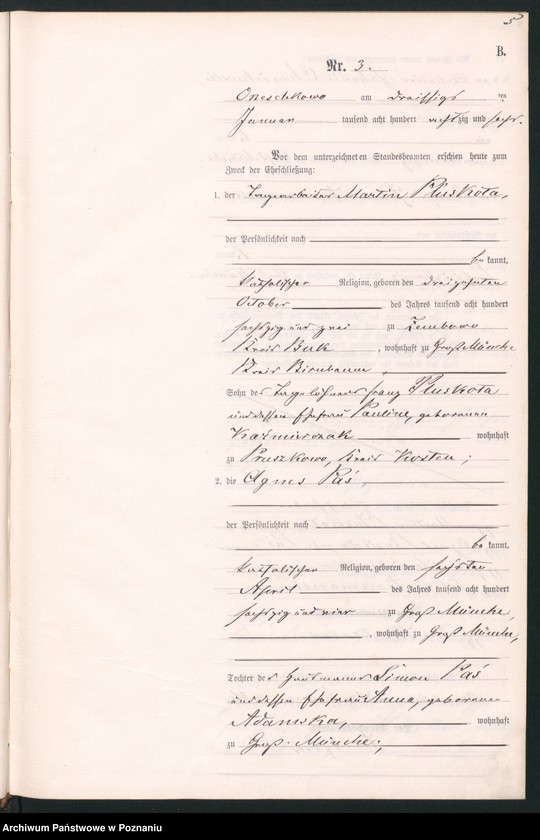 5
B.
Nr. 3.
am dreißigsten
Januar tausend acht hundert achtzig und sechs.
Vor dem unterzeichneten Standesbeamten erschien heute zum
Zweck der Eheschließung:
1. der Tagearbeiter Martin Pluskota,
der Persönlichkeit nach
bekannt,
katholischer Religion, geboren den dreizehnten
October des Jahres tausend acht hundert
sechszig und zwei zu Zembowo
Kreis Buk, wohnhaft zu Groß Münche
Kreis Birnbaum,
Sohn des Tagelöhners Franz Pluskota
und dessen Ehefrau Pauline, geborenen
Kaźmierczak wohnhaft
zu Pruszkowo, Kreis Kosten;
2. die Agnes Paś,
der Persönlichkeit nach
bekannt,
katholischer Religion, geboren den sechsten
April des Jahres tausend acht hundert
sechszig und vier zu Groß Münche,
, wohnhaft zu Groß Münche,
Tochter des Simon Paś
und dessen Ehefrau Anna, geborenen
Adamska, wohnhaft
zu Groß-Münche;
Archiwum Państwowe w Poznaniu